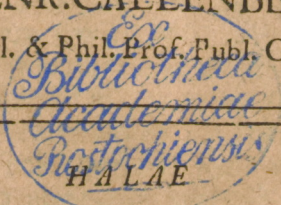 l. & Phil. Prof. Publ. O
Ex
Bibliotheca
Academiae
Rostochiensis
HALAE